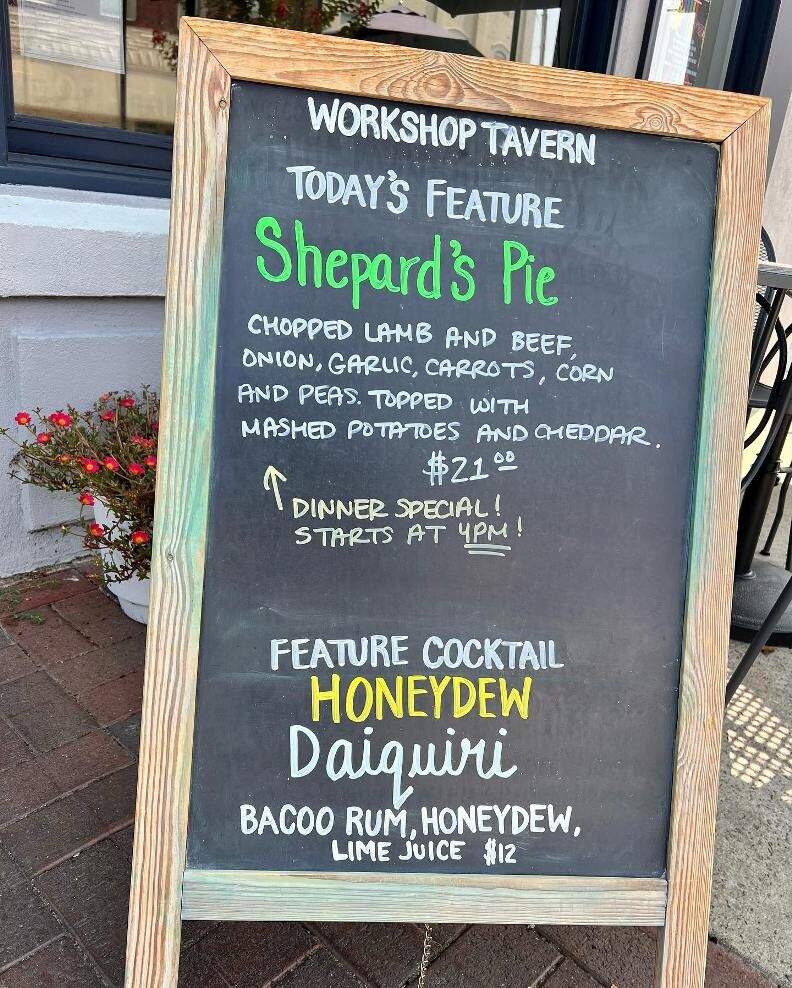 WORKSHOP TAVERN
TODAY'S FEATURE
Shepard's Pie
CHOPPED LAMB AND BEEF,
ONION, GARLIC, CARROTS, CORN
AND PEAS. TOPPED WITH
MASHED POTATOES AND CHEDDAR.
$21.00
DINNER SPECIAL!
STARTS AT 4PM!
FEATURE COCKTAIL
HONEYDEW
Daiquiri
BACOO RUM, HONEYDEW,
LIME JUICE $12